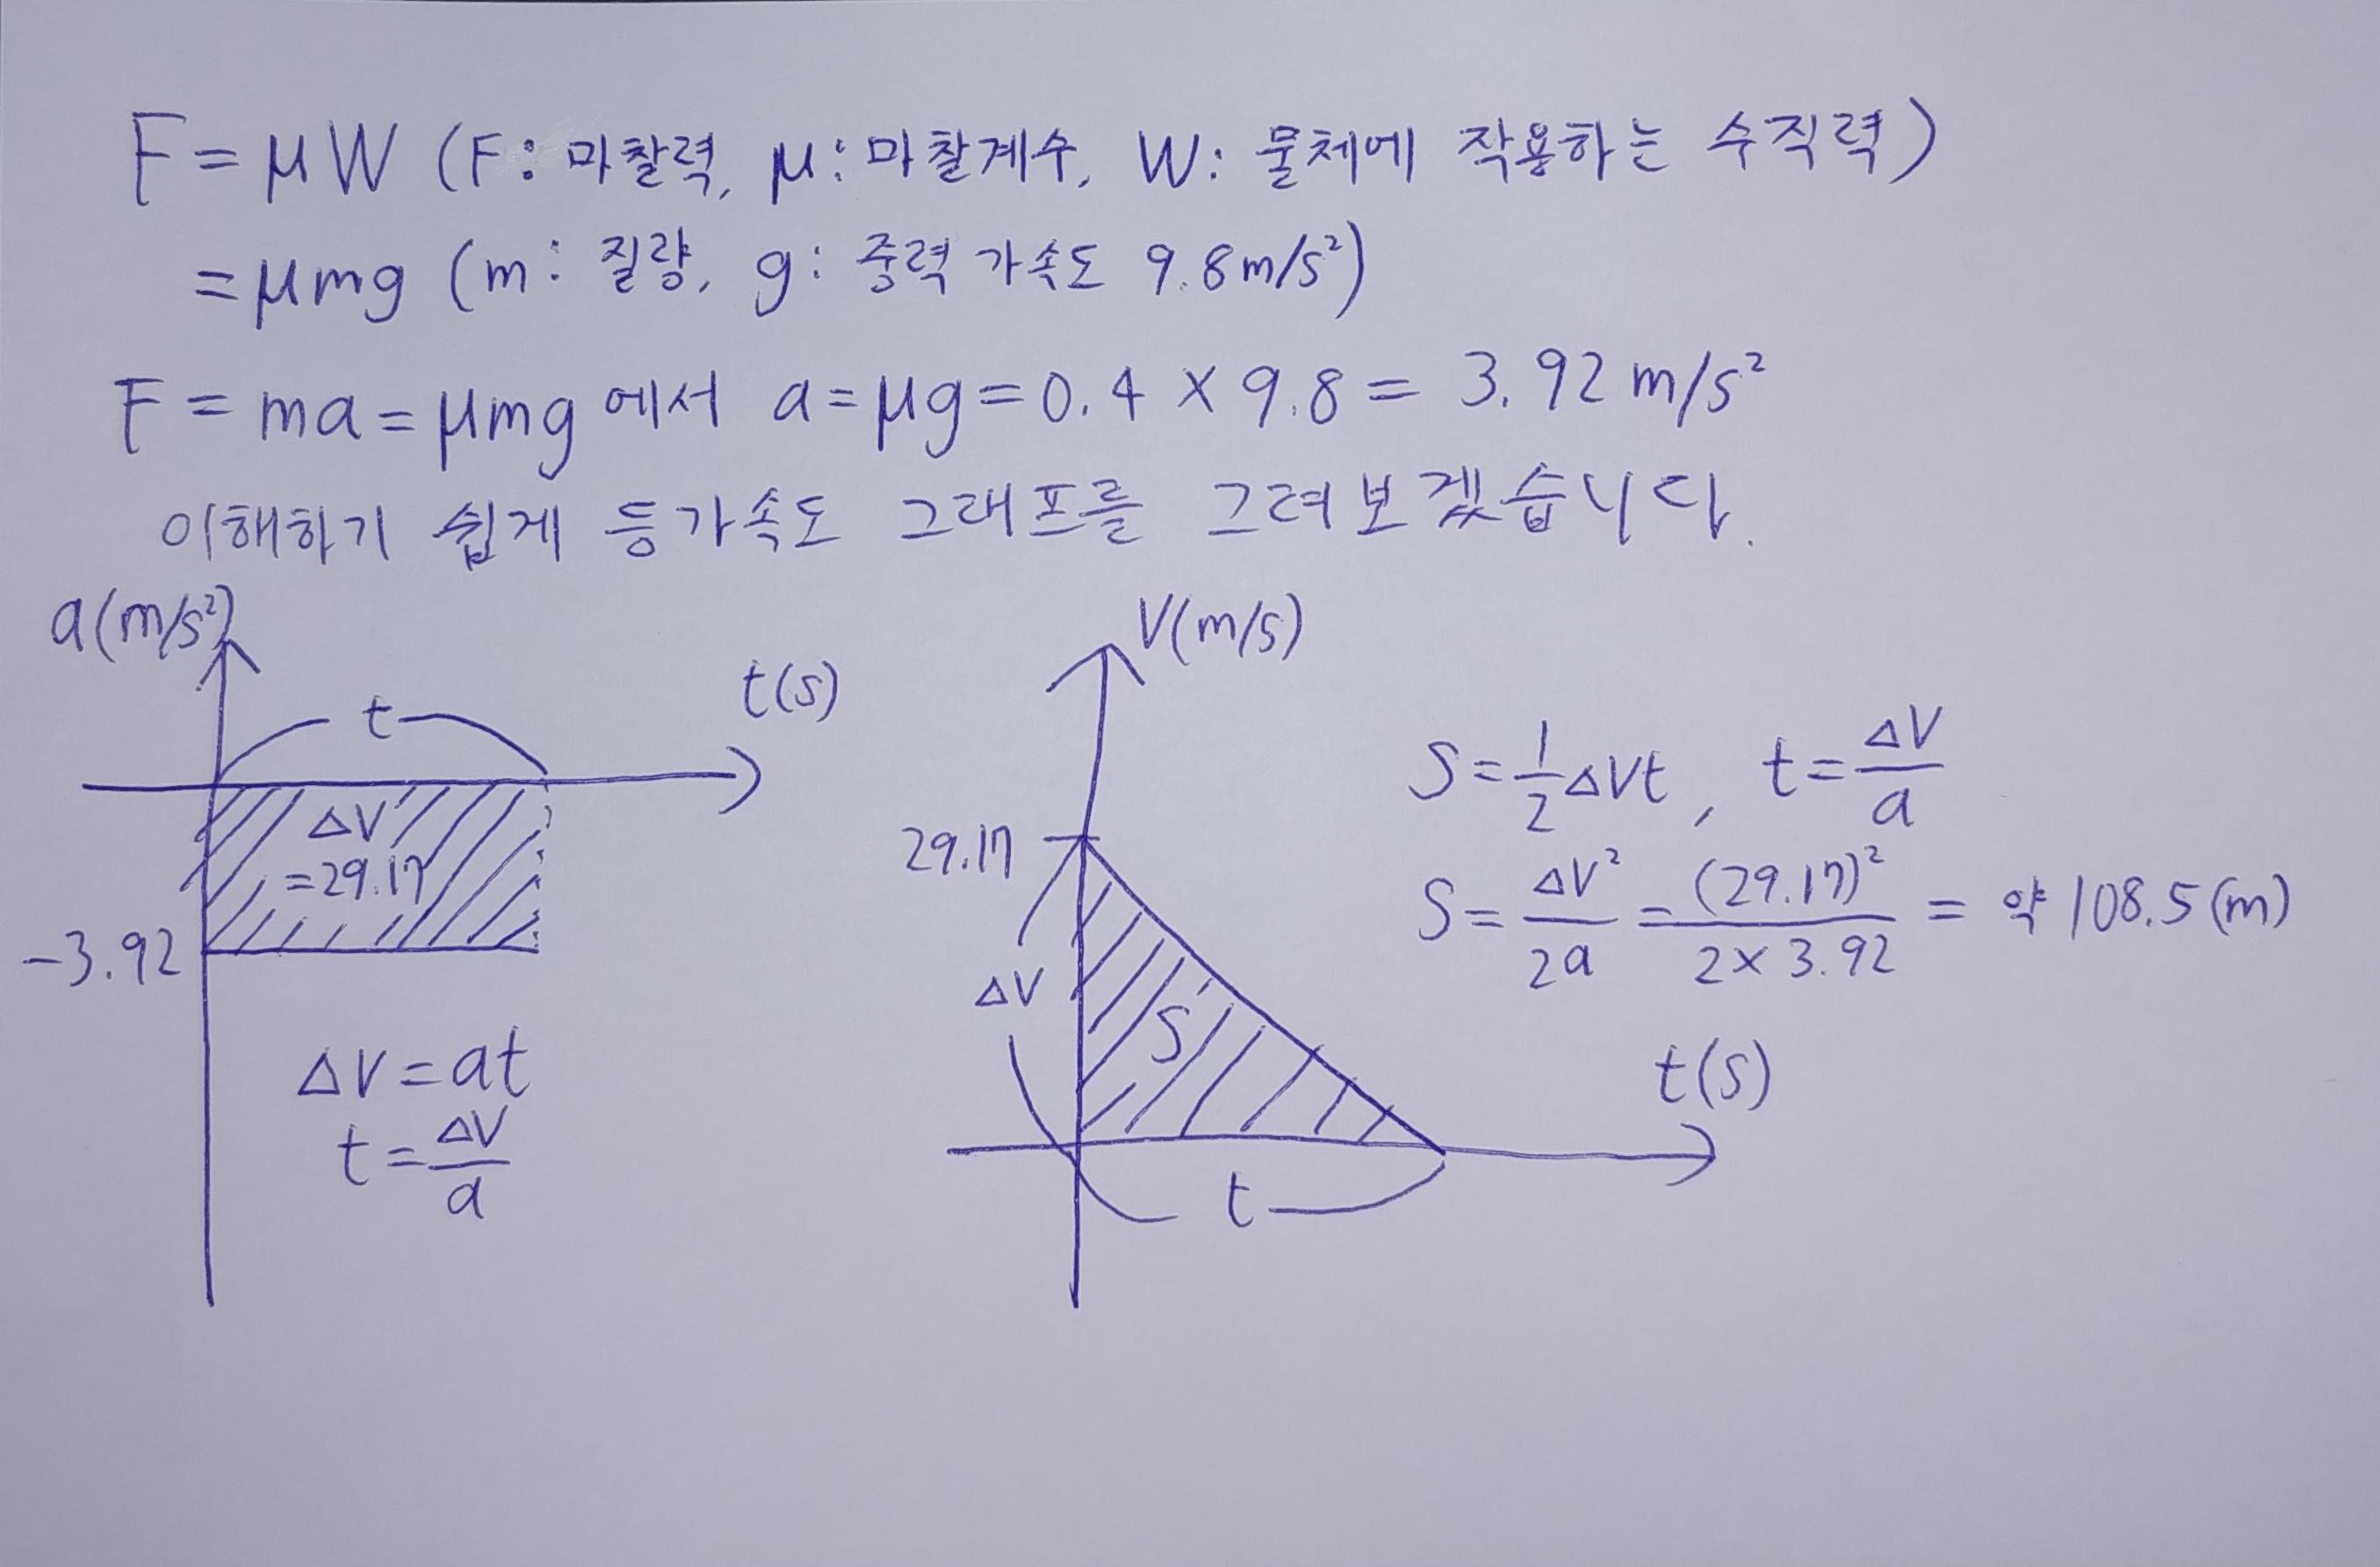 F = μW (F: 마찰력, μ: 마찰계수, W: 물체에 작용하는 수직력)
= μmg (m: 질량, g: 중력 가속도 9.8m/s²)
F = ma = μmg 에서 a = μg = 0.4 × 9.8 = 3.92 m/s²
이해하기 쉽게 등가속도 그래프를 그려보겠습니다.
a(m/s²)
t(s)
t
ΔV
=29.17
-3.92
ΔV = at
t = ΔV/a
V(m/s)
29.17
ΔV
S
t(s)
t
S = 1/2 ΔVt, t = ΔV/a
S = ΔV²/2a = (29.17)²/2×3.92 = 약 108.5(m)